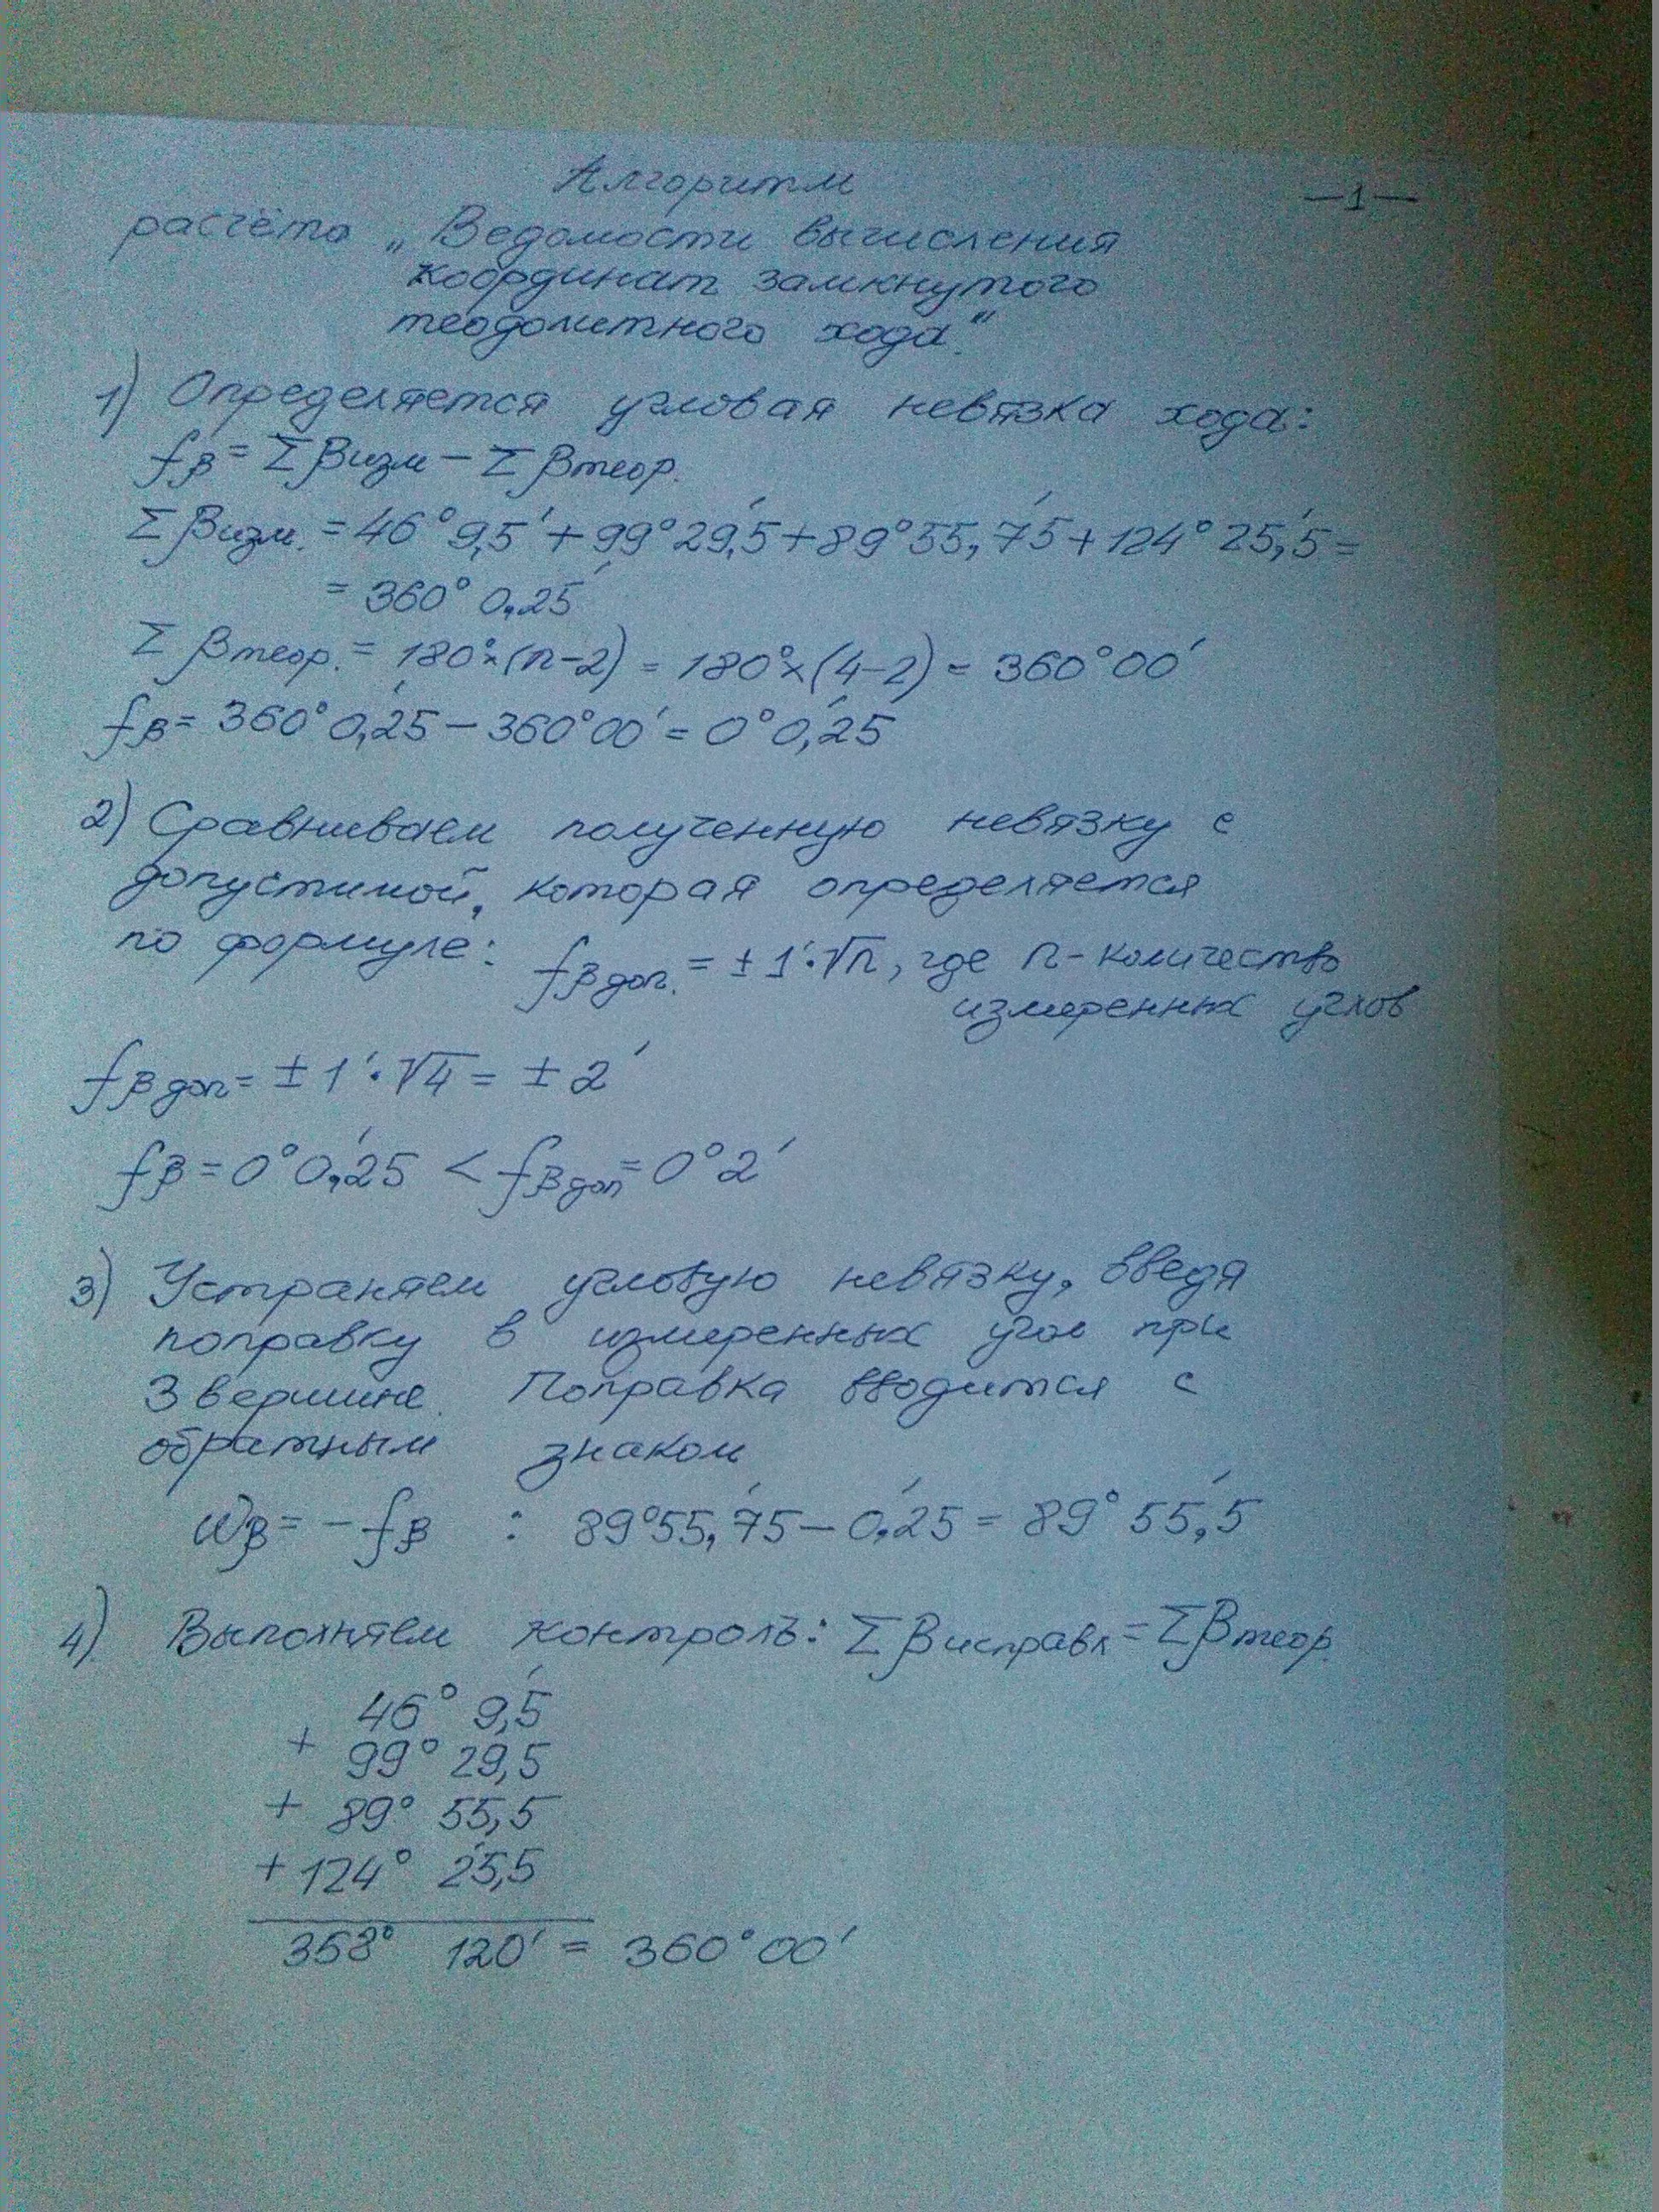 Алгоритм
—1—
расчёта „Ведомости вычисления
координат замкнутого
теодолитного хода".
1) Определяется угловая невязка хода:
fβ = Σβизм − Σβтеор.
Σβизм. = 46°9,5' + 99°29,'5 + 89°55,'75 + 124°25,'5 =
= 360°0,'25
Σβтеор. = 180°×(n−2) = 180°×(4−2) = 360°00'
fβ = 360°0,'25 − 360°00' = 0°0,'25
2) Сравниваем полученную невязку с
допустимой, которая определяется
по формуле: fβдоп. = ±1'·√n, где n - количество
измеренных углов
fβдоп = ±1'·√4 = ±2'
fβ = 0°0,'25 < fβдоп = 0°2'
3) Устраняем угловую невязку, введя
поправку в измеренных угол при
3 вершине. Поправка вводится с
обратным знаком
Wβ = −fβ : 89°55,'75 − 0,'25 = 89°55,'5
4) Выполняем контроль: Σβисправл = Σβтеор.
46° 9,'5
+ 99° 29,5
+ 89° 55,5
+ 124° 25,'5
358° 120' = 360°00'